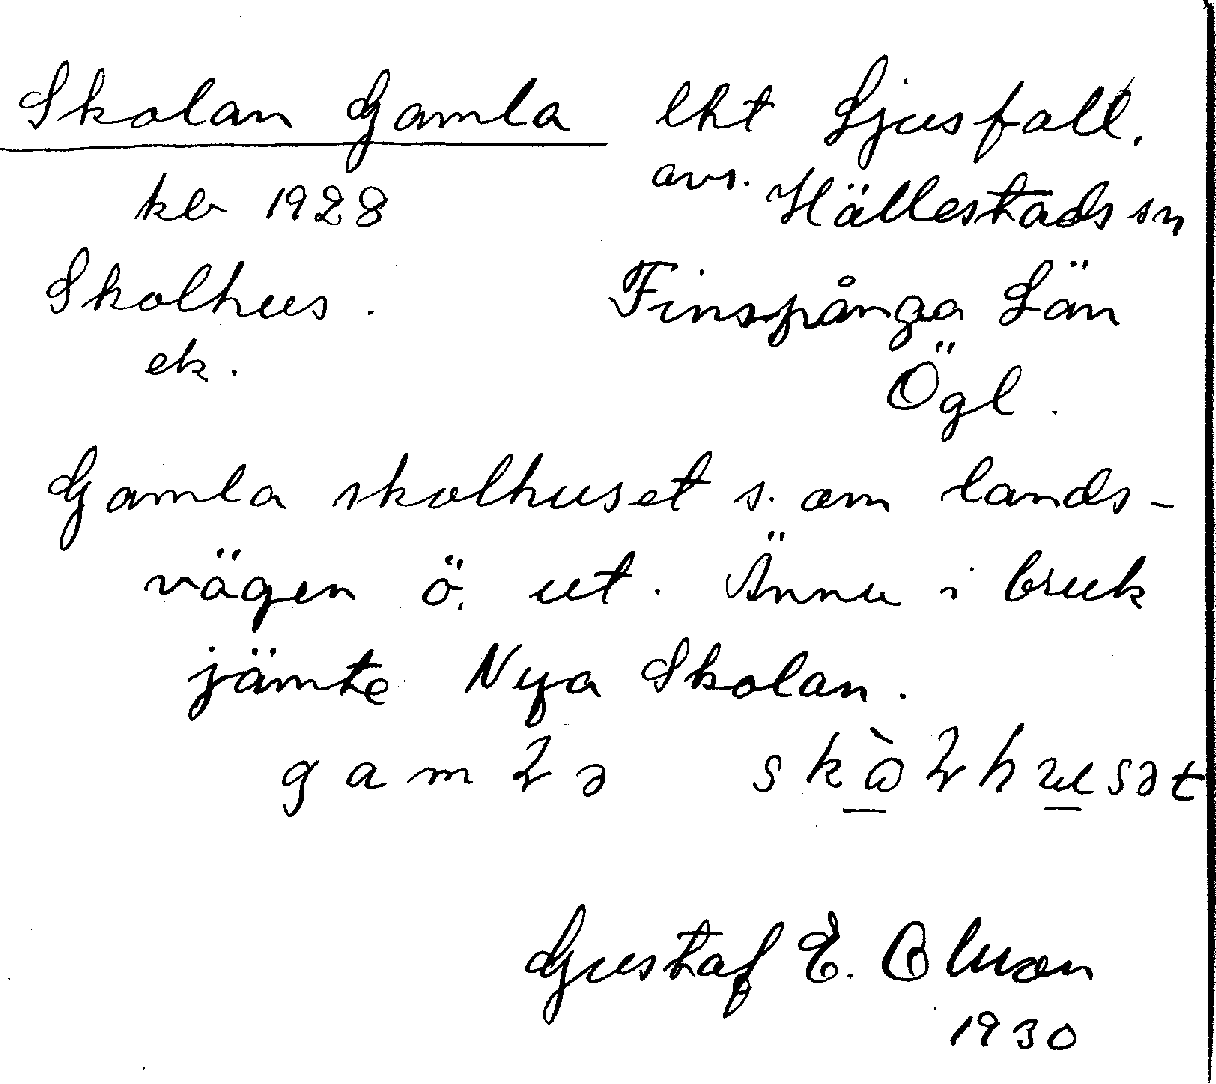 Skolan Gamla lht Ljusfall.
avs. Hällestads sn
kb 1928
Skolhus. Finspånga Län
ek.
Ögl.
Gamla skolhuset s. om lands-
vägen ö. ut. Ännu i bruk
jämte Nya Skolan.
Gustaf E. Olsson
1930